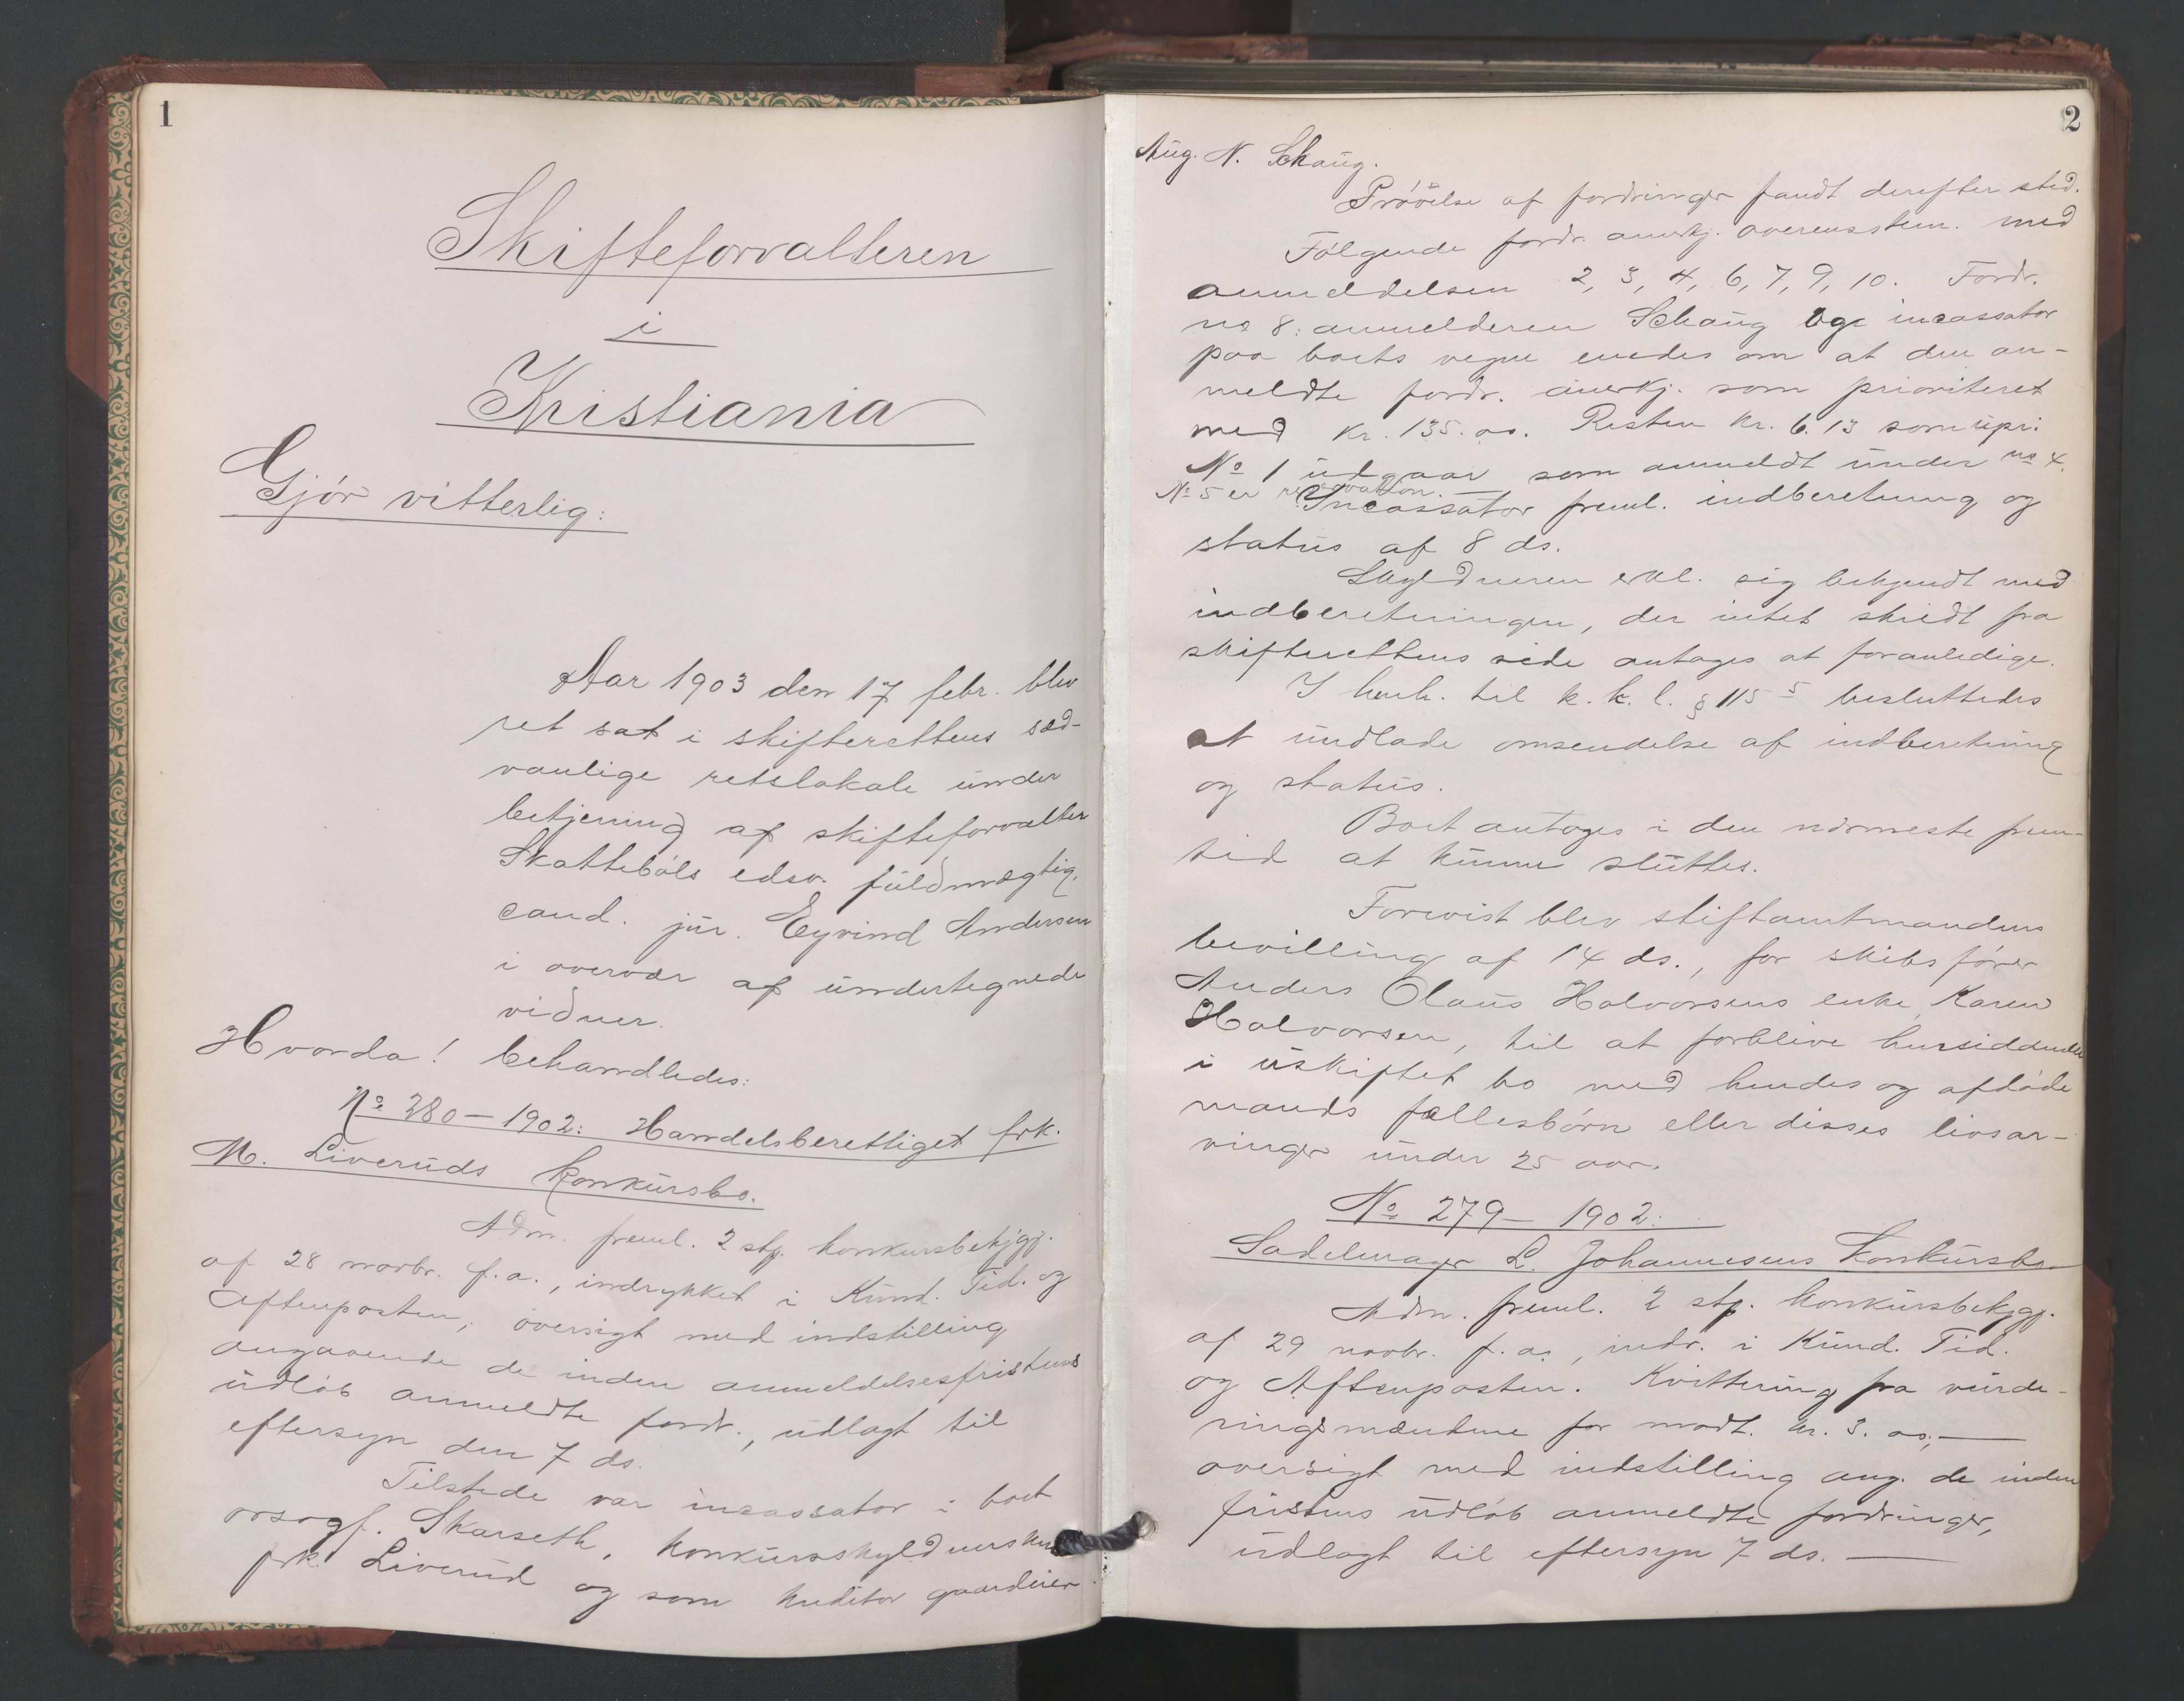 1
Skifteforvalteren
i
Kristiania
Gjör vitterlig:
Aar 1903 den 17 febr. blev
ret sat i skifterettens sæd-
vanlige retslokale under
betjening af skifteforvalter
Skattebóls edsv. fuldmægtig,
cand. jur. Eyvind Andersen
i overvær af undertegnede
vidner.
Hvorda! behandledes:
No 280 – 1902: Handelsberettiget frk.
M. Liveruds konkursbo.
Adm. freml. 2 stp. konkursbekjgj.
af 28 novbr. f. a., indrykket i Kund. Tid. og
Aftenposten, oversigt med indstilling
angaaende de inden anmeldelsesfristens
udlób anmeldte fordr., udlagt til
eftersyn den 7 ds.
Tilstede var incassator i boet
orsagf. Skarseth, konkursskyldnersken
frk. Liverud og som kreditor gaardeier
2
Aug. N. Schaug.
Prövelse af fordringer fandt derefter sted.
Fölgende fordr. anerkj. overensstem. med
anmeldelsen 2, 3, 4, 6, 7, 9, 10. Fordr.
no 8: anmelderen Schaug og incassator
paa boets vegne enedes om at den an-
meldte fordr. anerkj. som prioriteret
med kr. 135.00. Resten kr. 6.13 som upri:
No 1 udgaar som anmeldt under no 4.
No 5 er reservation.
Incassator freml. indberetning og
status af 8 ds.
Skyldneren erkl. sig bekjendt med
indberetningen, der intet skridt fra
skifterettens side antages at foranledige.
I henh. til k. k. l. § 115 5 besluttedes
at undlade omsendelse af indberetning
og status.
Boet antages i den nærmeste frem-
tid at kunne sluttes.
Forevist blev stiftamtmandens
bevilling af 14 ds., for skibsförer
Anders Olaus Halvorsens enke, Karen
Halvorsen, til at forblive hensiddende
i uskiftet bo med hendes og afdöde
mands fællesbörn eller disses livsar-
vinger under 25 aar.
No 279 – 1902:
Sadelmager L. Johannesens konkursbo.
Adm. freml. 2 stp. konkursbekjgj.
af 29 novbr. f. a., indr. i Kund. Tid.
og Aftenposten. Kvittering fra vurde-
ringsmændene for modt. kr. 3.00,—
oversigt med indstilling ang. de inden
fristens udlöb anmeldte fordringer,
udlagt til eftersyn 7 ds. —